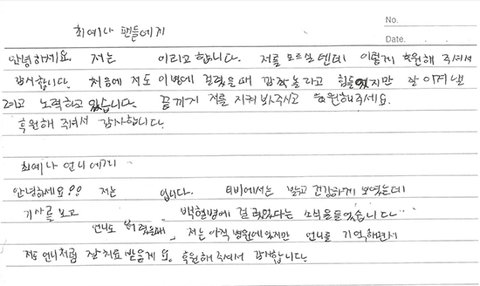 No.
Date.
최예나 팬들에게
안녕하세요. 저는 이라고 합니다. 저를 모르실 텐데 이렇게 후원해 주셔서
감사합니다. 처음에 저도 이병에 걸렸을때 깜짝 놀라고 힘들었지만 잘 이겨낼
려고 노력하고 있습니다. 끝까지 저를 지켜 봐주시고 후원해주세요.
후원해 주셔서 감사합니다.
최예나 언니에게
안녕하세요?? 저는 입니다. 티비에서는 밝고 건강하게 보였는데
기사를 보고 백혈병에 걸렸었다는 소식을 들었습니다
언니도 저는 아직 병원에 있지만 언니를 기억하면서
저도 언니처럼 잘 치료 받을게요. 후원해 주셔서 감사합니다.